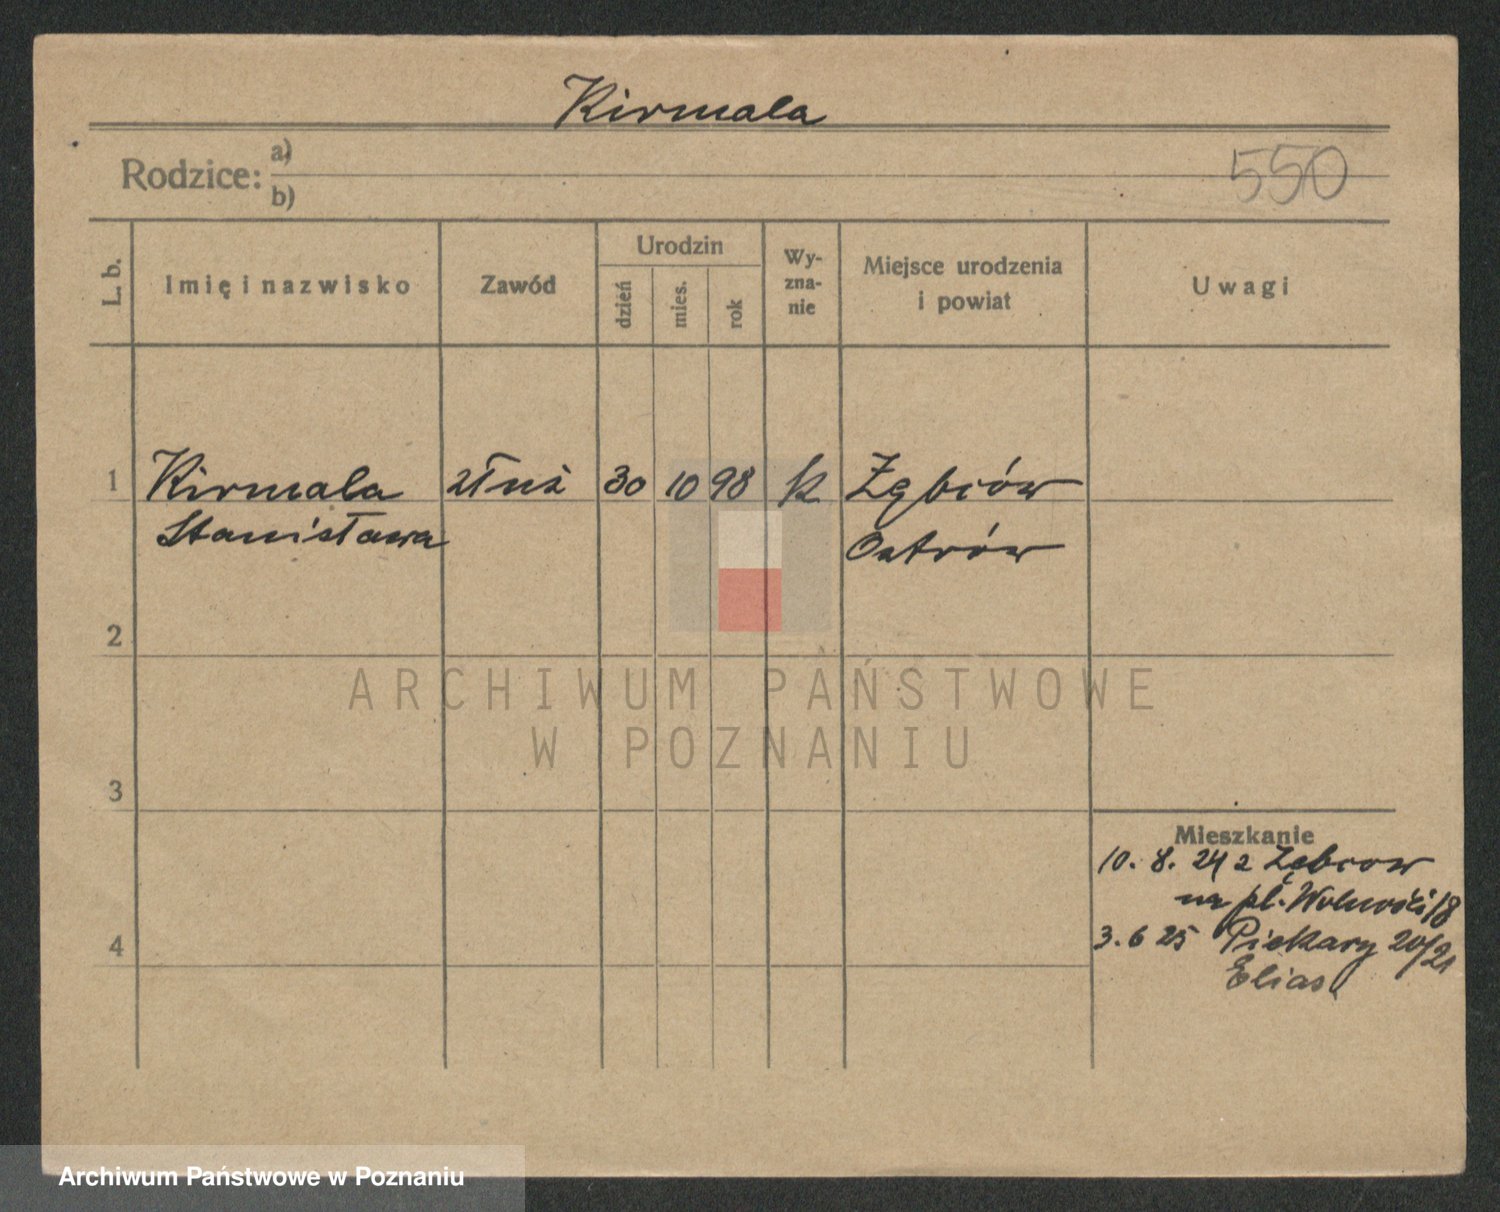 Kirmala
Rodzice: a)
b)
550
L. b.
Imię i nazwisko
Zawód
Urodzin
dzień
mies.
rok
Wy-
zna-
nie
Miejsce urodzenia
i powiat
Uwagi
1 Kirmala 30 10 98 k Zębców
Stanisława Ostrów
2
ARCHIWUM PAŃSTWOWE
W POZNANIU
3
Mieszkanie
10. 8. 24 z Zębcow
na pl. Wolności 18
4
3. 6 25 Piekary 20/21
Elias
Archiwum Państwowe w Poznaniu